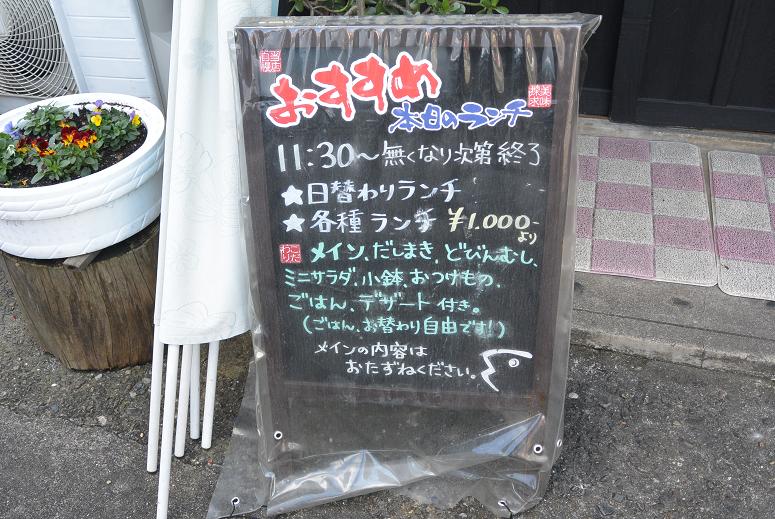 当店自慢
おすすめ
美味探求
本日のランチ
11:30～無くなり次第終了
★日替わりランチ
★各種ランチ ¥1.000-より
こだわり メイン、だしまき、どびんむし、
ミニサラダ、小鉢、おつけもの、
ごはん、デザート付き。
(ごはん、お替わり自由です!)
メインの内容は
おたずねください。